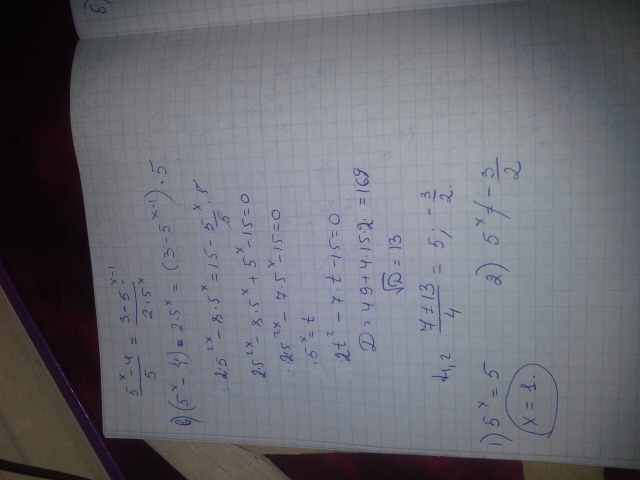 б)
(5^x - 4)/5 = (3 - 5^(x-1))/(2·5^x)
в) (5^x - 4)·2·5^x = (3 - 5^(x-1))·5
2·5^(2x) - 8·5^x = 15 - 5^x/5·5
2·5^(2x) - 8·5^x + 5^x - 15 = 0
2·5^(2x) - 7·5^x - 15 = 0
5^x = t
2t² - 7·t - 15 = 0
D = 49 + 4·15·2 = 169
√D = 13
t₁,₂ (7 ± 13)/4 = 5; -3/2
1) 5^x = 5 2) 5^x ≠ -3/2
x = 1.